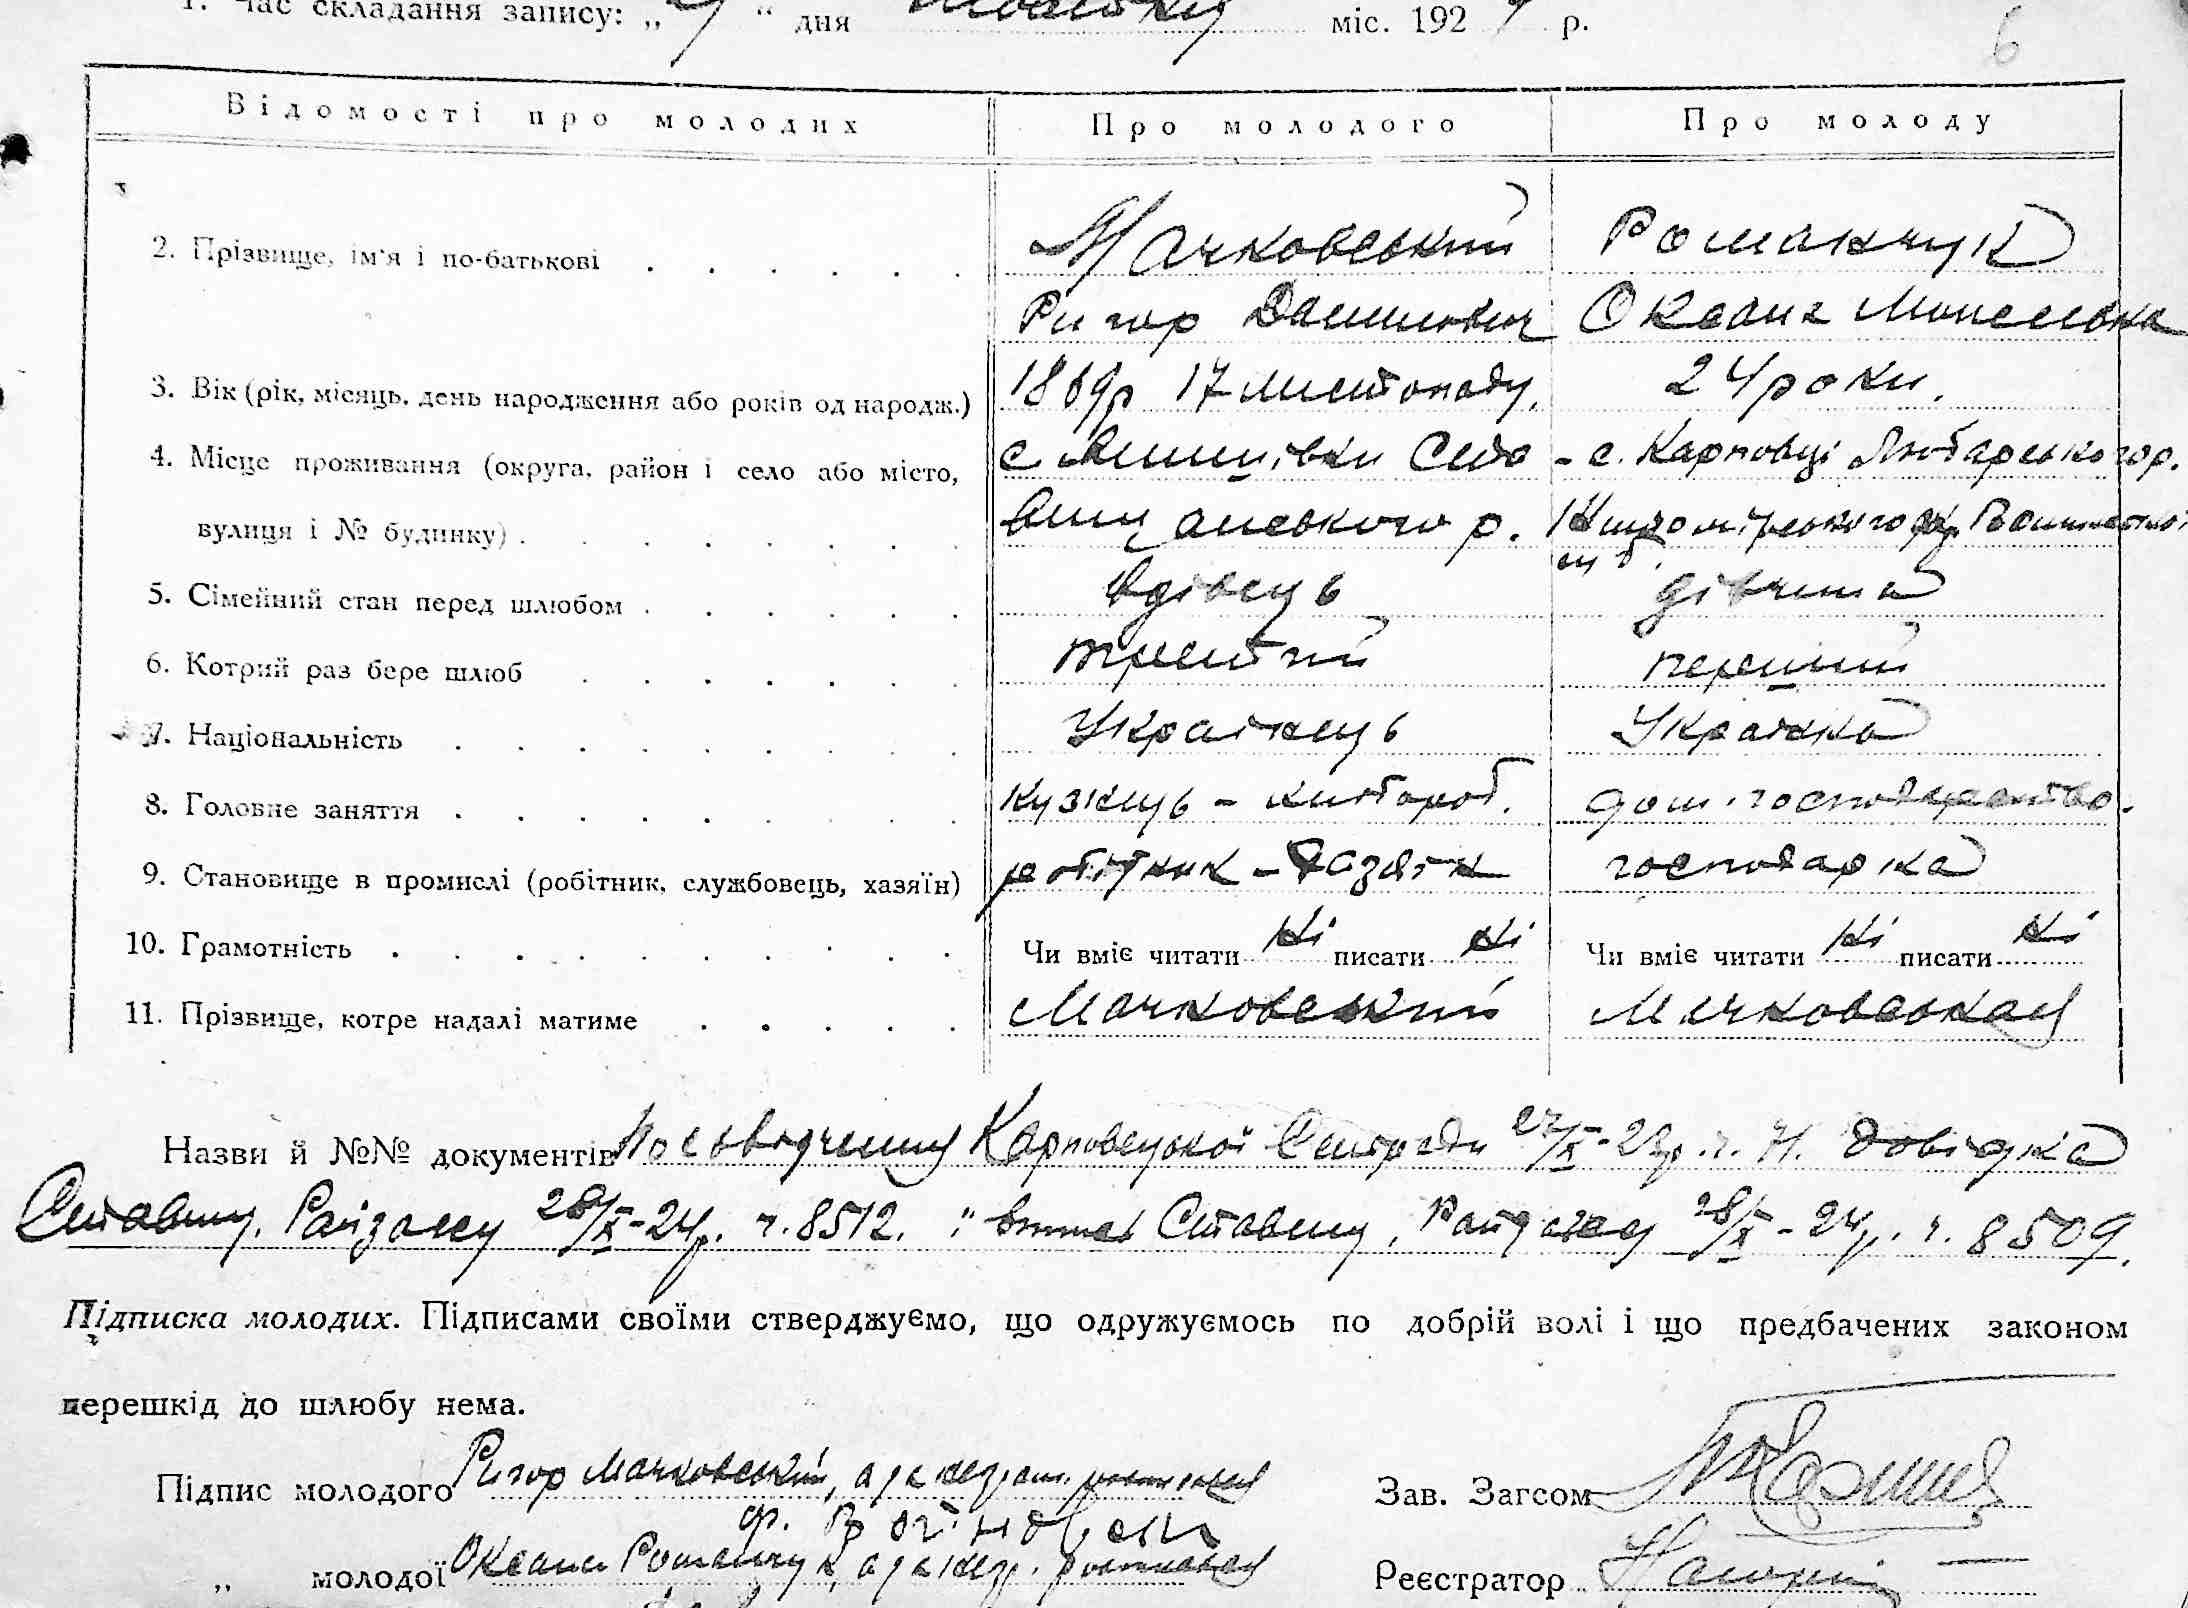 1. Час складання запису: „ “ дня міс. 192 р.
6
Відомості про молодих Про молодого Про молоду
2. Прізвище, ім'я і по-батькові Мачковський Романчук
Ригор Данилович Оксана Мойсеєвна
3. Вік (рік, місяць, день народження або років од народж.) 1869р 17 листопаду. 24 роки.
4. Місце проживання (округа, район і село або місто, с. Ста- с. Карповці Любарського р.
вулиця і № будинку) вищанського р. Житомірського
5. Сімейний стан перед шлюбом вдівець дівчина
6. Котрий раз бере шлюб третій перший
7. Національність Украінець Украінка
8. Головне заняття кузнець - хлібороб. дом. господарство.
9. Становище в промислі (робітник, службовець, хазяїн) робітник - хазяїн господарка
10. Грамотність Чи вміє читати ні писати ні Чи вміє читати ні писати ні
11. Прізвище, котре надалі матиме Мачковський Мачковськая
Назви й №№ документів Посьвідчення Карповецькоі Сільради 27/X - р. ч. 71. Довідка
Ставищ. Райзагсу 28/X-24р. ч. 8512. Ставищ. 28/X-24р. ч. 8509.
Підписка молодих. Підписами своїми стверджуємо, що одружуємось по добрій волі і що предбачених законом
перешкід до шлюбу нема.
Підпис молодого Ригор Мачковський, а за
Зав. Загсом
„ молодої Оксана Романчук, а за
Реєстратор